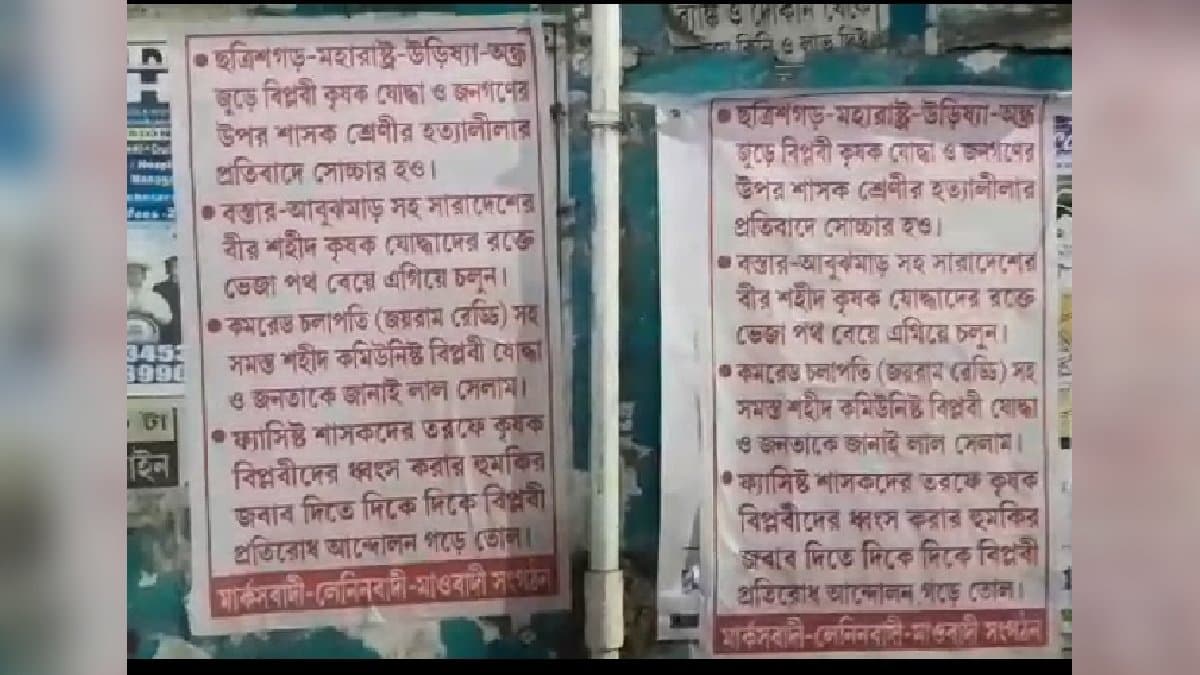 • ছত্রিশগড়-মহারাষ্ট্র-উড়িষ্যা-অন্ধ্র
জুড়ে বিপ্লবী কৃষক যোদ্ধা ও জনগণের
উপর শাসক শ্রেণীর হত্যালীলার
প্রতিবাদে সোচ্চার হও।
• বস্তার-আবুঝমাড় সহ সারাদেশের
বীর শহীদ কৃষক যোদ্ধাদের রক্তে
ভেজা পথ বেয়ে এগিয়ে চলুন।
• কমরেড চলাপতি (জয়রাম রেড্ডি) সহ
সমস্ত শহীদ কমিউনিষ্ট বিপ্লবী যোদ্ধা
ও জনতাকে জানাই লাল সেলাম।
• ফ্যাসিষ্ট শাসকদের তরফে কৃষক
বিপ্লবীদের ধ্বংস করার হুমকির
জবাব দিতে দিকে দিকে বিপ্লবী
প্রতিরোধ আন্দোলন গড়ে তোল।
মার্কসবাদী-লেনিনবাদী-মাওবাদী সংগঠন
• ছত্রিশগড়-মহারাষ্ট্র-উড়িষ্যা-অন্ধ্র
জুড়ে বিপ্লবী কৃষক যোদ্ধা ও জনগণের
উপর শাসক শ্রেণীর হত্যালীলার
প্রতিবাদে সোচ্চার হও।
• বস্তার-আবুঝমাড় সহ সারাদেশের
বীর শহীদ কৃষক যোদ্ধাদের রক্তে
ভেজা পথ বেয়ে এগিয়ে চলুন।
• কমরেড চলাপতি (জয়রাম রেড্ডি) সহ
সমস্ত শহীদ কমিউনিষ্ট বিপ্লবী যোদ্ধা
ও জনতাকে জানাই লাল সেলাম।
• ফ্যাসিষ্ট শাসকদের তরফে কৃষক
বিপ্লবীদের ধ্বংস করার হুমকির
জবাব দিতে দিকে দিকে বিপ্লবী
প্রতিরোধ আন্দোলন গড়ে তোল।
মার্কসবাদী-লেনিনবাদী-মাওবাদী সংগঠন
3453
8990
টা